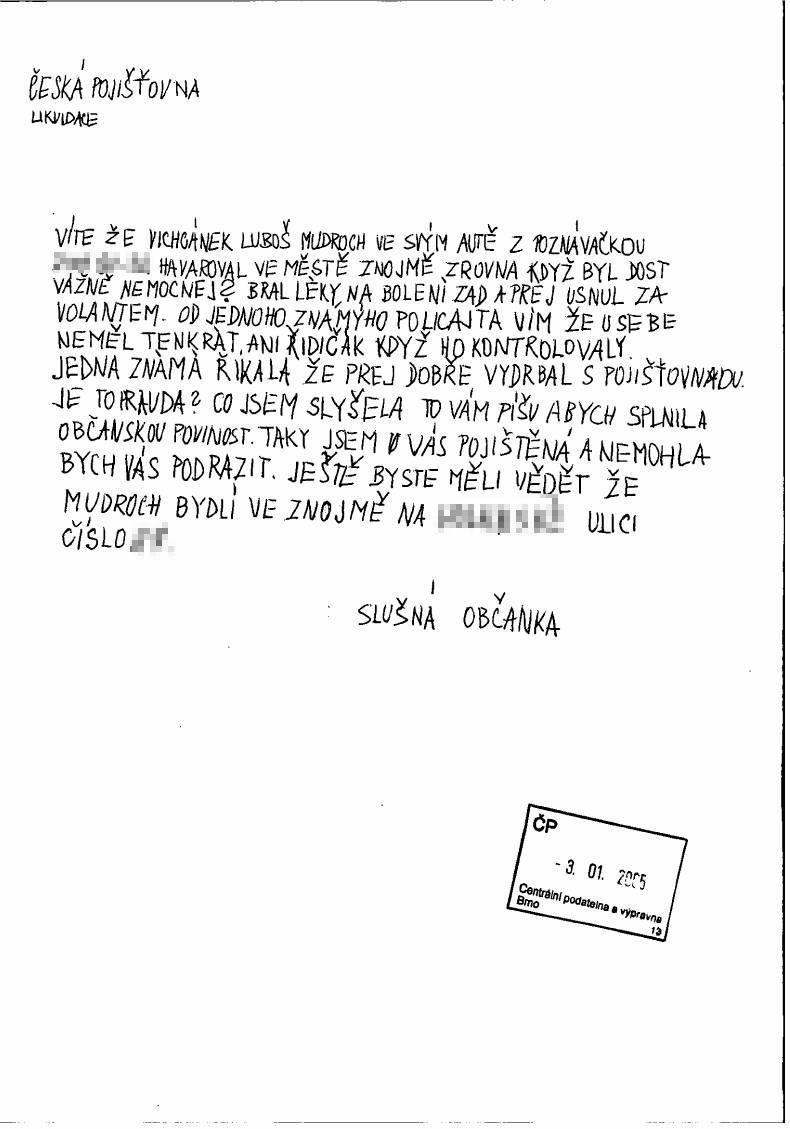 ČESKÁ POJIŠŤOVNA
LIKVIDACE
VÍTE ŽE VICHCÁNEK LUBOŠ MUDROCH VE SVÝM AUTĚ Z POZNÁVAČKOU
HAVAROVAL VE MĚSTĚ ZNOJMĚ ZROVNA KDYŽ BYL DOST
VÁŽNĚ NEMOCNEJ? BRAL LÉKY NA BOLENÍ ZAD A PREJ USNUL ZA-
VOLANTEM. OD JEDNOHO ZNÁMÝHO POLICAJTA VÍM ŽE U SEBE
NEMĚL TENKRÁT ANI ŘIDIČÁK KDYŽ HO KONTROLOVALY.
JEDNA ZNÁMÁ ŘÍKALA ŽE PREJ DOBŘE VYDRBAL S POJIŠŤOVNADU.
JE TO PRAVDA? CO JSEM SLYŠELA TO VÁM PÍŠU ABYCH SPLNILA
OBČANSKOU POVINOST. TAKY JSEM U VÁS POJIŠTĚNÁ A NEMOHLA-
BYCH VÁS PODRAZIT. JEŠTĚ BYSTE MĚLI VĚDĚT ŽE
MUDROCH BYDLÍ VE ZNOJMĚ NA ULICI
ČÍSLO
SLUŠNÁ OBČANKA
ČP
- 3. 01. 2005
Centrální podatelna a výpravna
Brno
13